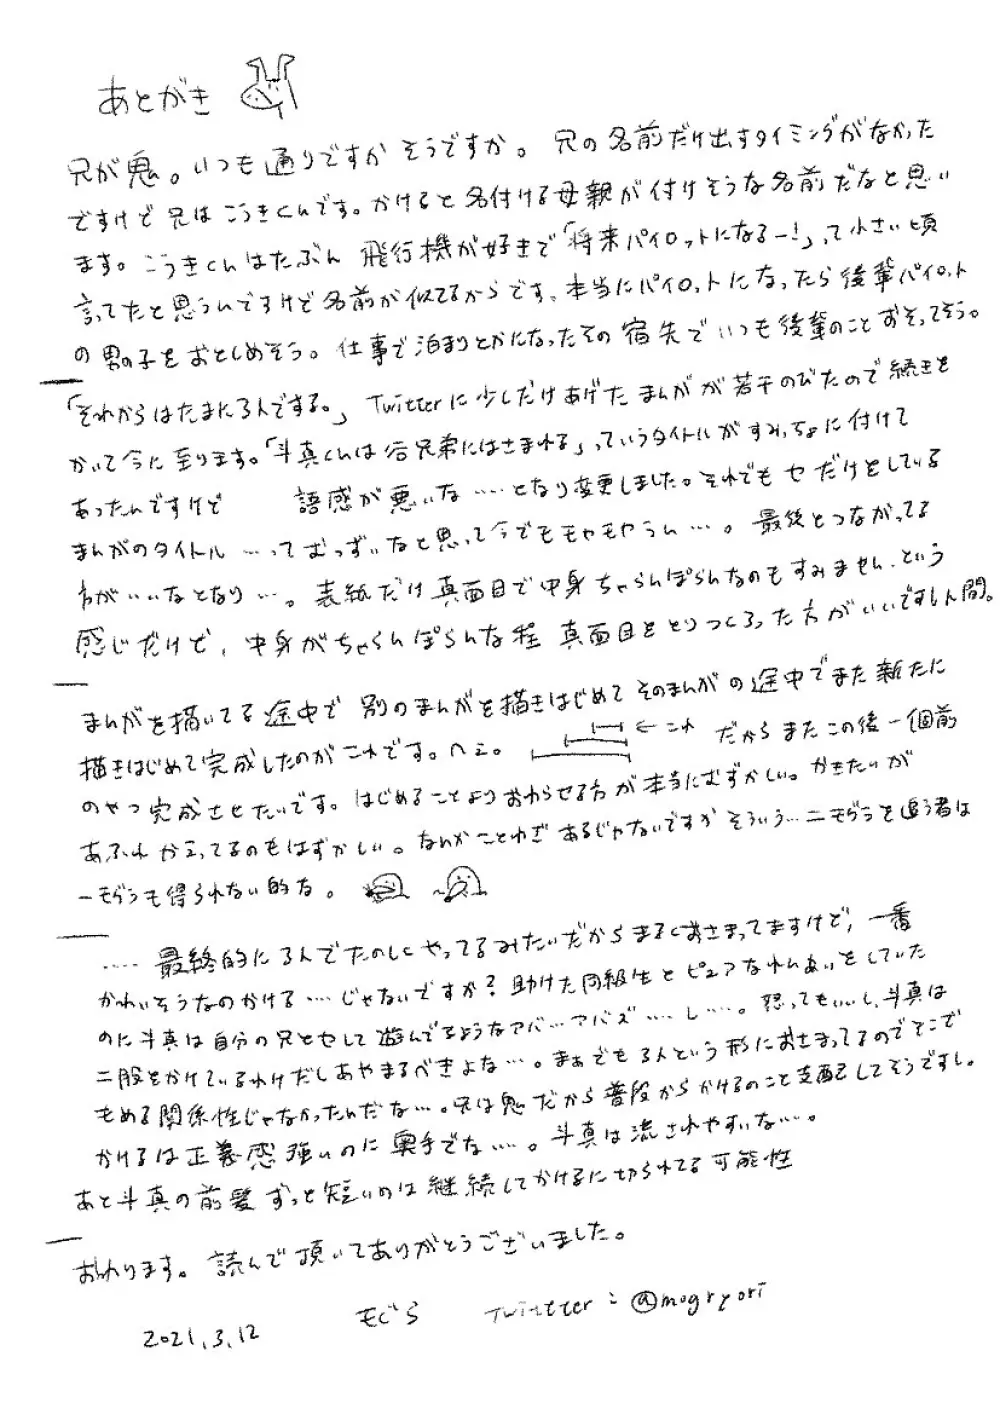 あとがき
兄が鬼。いつも通りですかそうですか。兄の名前だけ出すタイミングがなかった
ですけど兄はこうきくんです。かけると名付ける母親が付けそうな名前だなと思い
ます。こうきくんはたぶん飛行機が好きで「将来パイロットになるー!」って小さい頃
言ってたと思うんですけど名前が似てるからです、本当にパイロットになったら後輩パイロット
の男の子をおとしめそう。仕事で泊まりとかになったその宿先でいつも後輩のことおそってそう。
「それからはたまに3人でする。」Twitterに少しだけあげたまんがが若干のびたので続きを
かいて今に至ります。「斗真くんは谷兄弟にはさまれる」っていうタイトルがすみっちょに付けて
あったんですけど 語感が悪いな……となり変更しました。それでもセだけをしている
まんがのタイトル…ってむっずいなと思って今でもモヤモヤうん…。最後とつながってる
方がいいなとなり…。表紙だけ真面目で中身ちゃらんぽらんなのもすみません、という
感じだけど、中身がちゃらんぽらんな程 真面目をとりつくろった方がいいですし人間。
まんがを描いてる途中で別のまんがを描きはじめてそのまんがの途中でまた新たに
描きはじめて完成したのがこれです。へぇ。 ←これ だからまたこの後一個前
のやつ完成させたいです。はじめることよりおわらせる方が本当にむずかしい。かきたいが
あふれかえってるのもはずかしい。なんかことわざあるじゃないですかそういう…二モグラを追う者は
一モグラも得られない的な。
……最終的に3人でたのしくやってるみたいだからまるくおさまってますけど、一番
かわいそうなのかける…じゃないですか?助けた同級生とピュアなれんあいをしていた
のに斗真は自分の兄とセして遊んでるようなアバ…アバズ……し……。怒ってもいいし、斗真は
二股をかけているわけだしあやまるべきよな…。まぁでも3人という形におさまってるのでそこで
もめる関係性じゃなかったんだな…。兄は鬼だから普段からかけるのこと支配してそうですし。
かけるは正義感強いのに奥手でな…。斗真は流されやすいな…。
あと斗真の前髪ずっと短いのは継続してかけるに切られてる可能性
おわります。読んで頂いてありがとうございました。
2021.3.12 もぐら Twitter:@mogryori